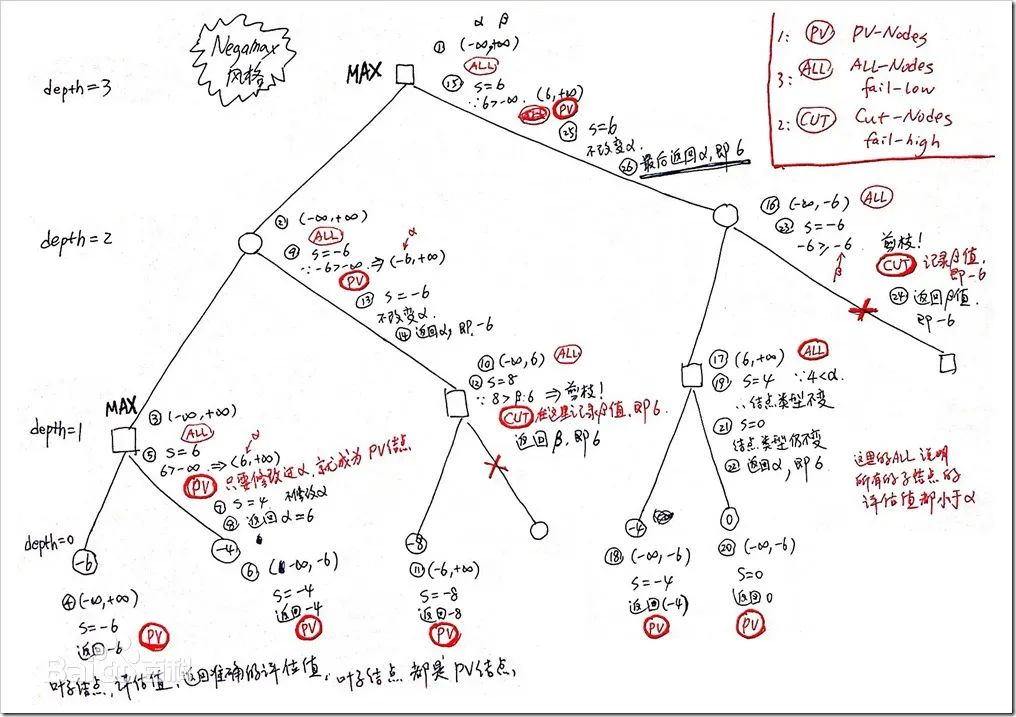 Negamax
风格
α β
① (-∞,+∞)
ALL
MAX
⑮ S=6
∵6>-∞. (6,+∞)
PV
㉕ S=6
不改变α.
㉖ 最后返回α,即6
1: PV PV-Nodes
3: ALL ALL-Nodes
fail-low
2: CUT Cut-Nodes
fail-high
depth=3
depth=2
② (-∞,+∞)
ALL
α
⑨ S=-6
∵-6>-∞ ⇒(-6,+∞)
PV
⑬ S=-6
不改变α.
⑭ 返回α,即-6
⑯ (-∞,-6) ALL
㉓ S=-6
-6≥-6 剪枝!
β
CUT 记录β值,
即-6
㉔ 返回β值.
即-6
depth=1
MAX
③ (-∞,+∞)
ALL
α
⑤ S=6
6>-∞ ⇒(6,+∞)
PV 只要修改过α,就成为PV结点
⑦ S=4 不修改α
⑧ 返回α=6
⑩ (-∞,6) ALL
⑫ S=8
∵8>β:6 ⇒剪枝!
CUT 在这里记录β值,即6.
返回β,即6
⑰ (6,+∞) ALL
⑲ S=4 ∵4<α.
∴结点类型不变
㉑ S=0
结点类型仍不变
㉒ 返回α,即6
这里的ALL说明
所有的子结点的
评估值都小于α
depth=0
-6
④ (-∞,+∞)
S=-6
返回-6
PV
-4
⑥ (-∞,-6)
S=-4
返回-4
PV
-8
⑪ (-6,+∞)
S=-8
返回-8
PV
-4
⑱ (-∞,-6)
S=-4
返回(-4)
PV
0
⑳ (-∞,-6)
S=0
返回0
PV
叶子结点,评估值,返回准确的评估值,叶子结点都是PV结点,
Baidu百科